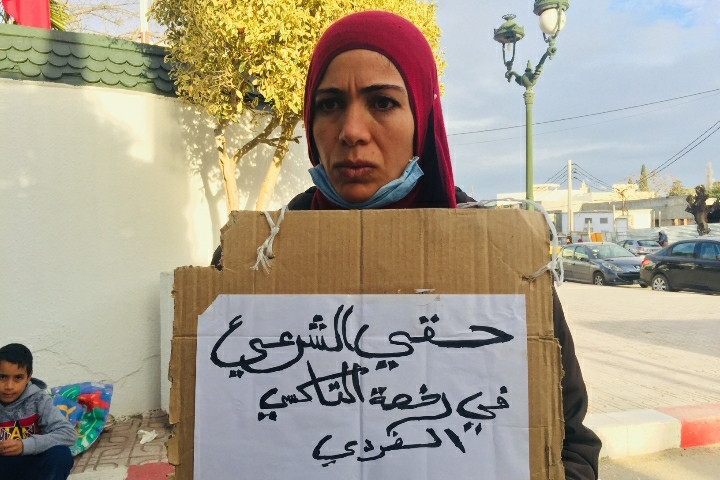 حقي الشرعي
في رخصة التاكسي
الفردي